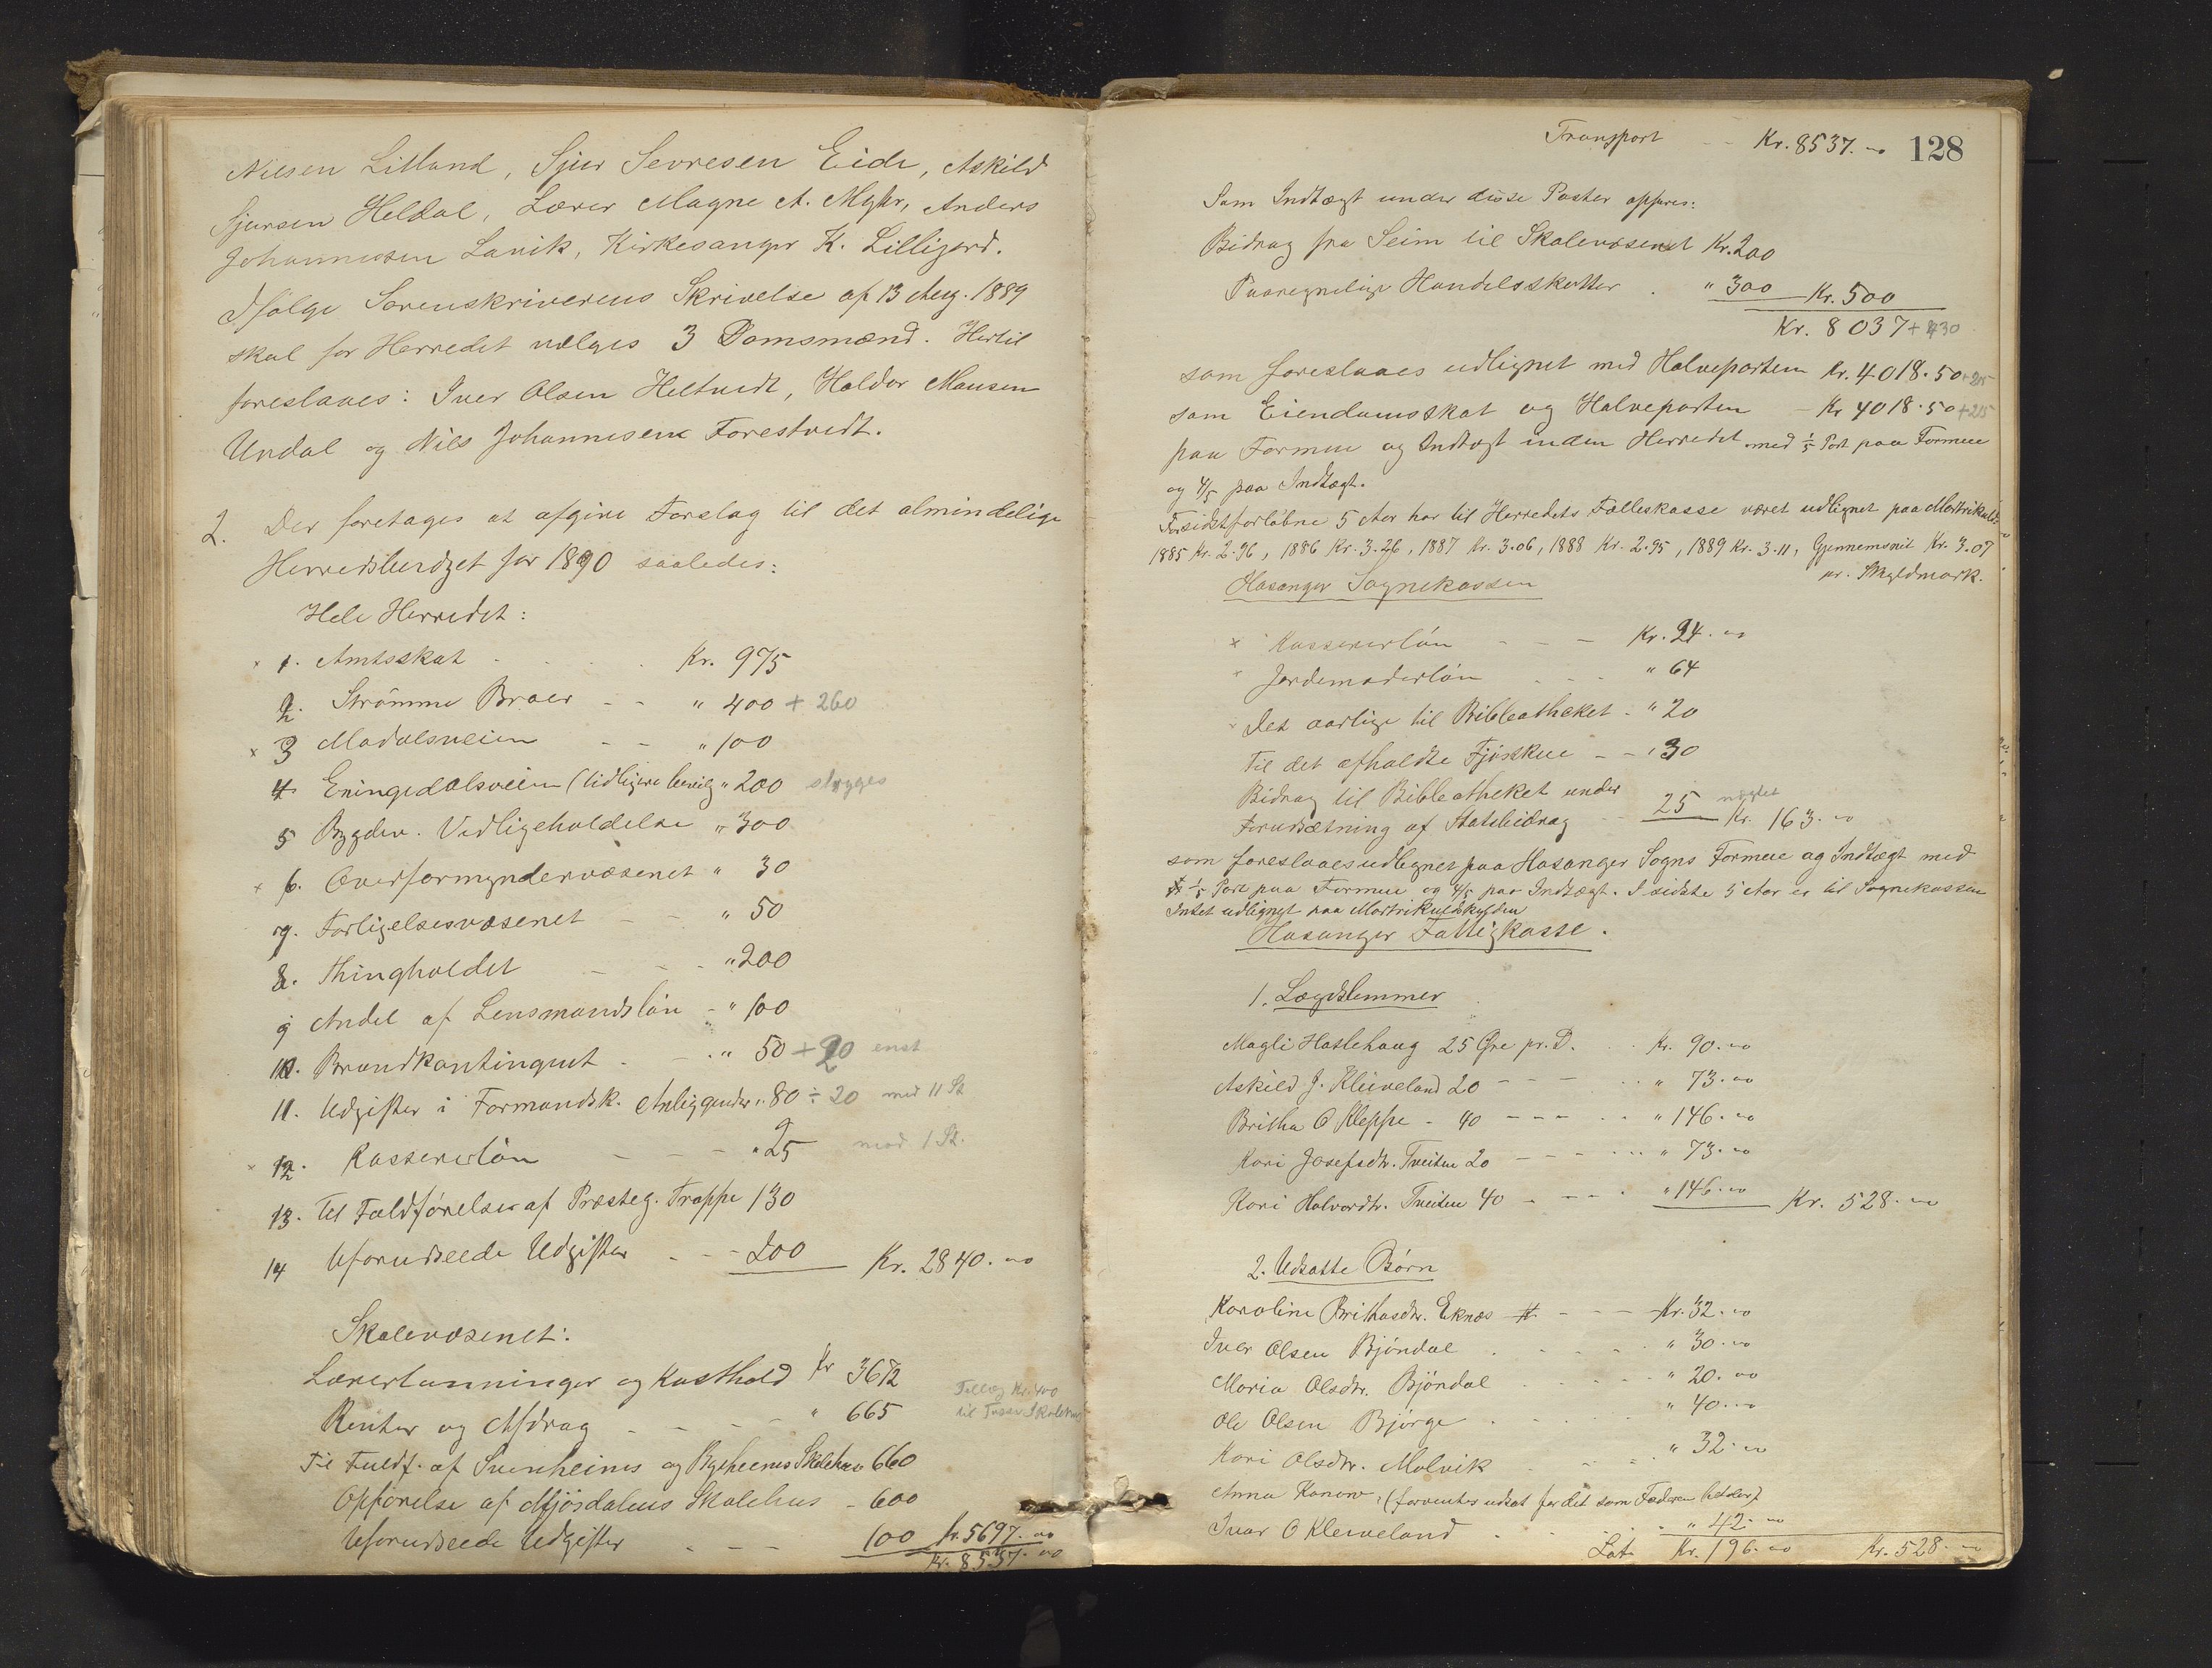 Nilsen Litland, Sjur Sevresen Eide, Askild
Sjursen Heldal, Lærer Magne A. Mykr, Anders
Johannessen Lavik, Kirkesanger K. Lilligerd.
Ifølge Sorenskriverens Skrivelse af 13 Aug. 1889
skal for Herredet vælges 3 Domsmænd. Hertil
foreslaaes: Iver Olsen Heltvedt, Haldor Monsen
Undal og Nils Johannesen Forestvedt.
2. Der foretages at afgive Forslag til det almindelige
Herredsbudget for 1890 saaledes:
Hele Herredet:
x 1. Amtsskat Kr. 975
2. Strömme Broer " 400 + 260
x 3 Modalsveien " 100
4 Eningedalsveien (tidligere bevilg " 200 stryges
5 Bygdev. Vedligeholdelse " 300
x 6. Overformyndervæsenet " 30
7. Forligelsesvæsenet " 50
8. Thingholdet " 200
9 Andel af Lensmandslön " 100
10. Brandkontingent " 50 + 20 enst
11. Udgifter i Formandsk. Anliggender " 80 ÷ 20 med 11 St
x 12. Kassererlön " 25 mod 1 St.
13. Til Fuldförelse af Præsteg. Trappe 130
14 Uforudseede Udgifter 200 Kr. 2840.00
Skolevæsenet:
Lærerlønninger og Kosthold Kr 3672
Tillæg Kr. 400
Renter og Afdrag " 665
til Skolehus
Til Fuldf. af Svenheims og Bysheims Skolehus 660
Opförelse af Mjösdalens Skolehus 600
Uforudseede Udgifter 100 Kr. 5697.00
Kr. 8537.00
Transport Kr. 8537.00 128
Som Indtægt under disse Poster opføres:
Bidrag fra Seim til Skolevæsenet Kr. 200
Paaregnelige Handelsskatter " 300 Kr. 500
Kr. 8037 + 430
som foreslaaes udlignet med Halveparten Kr. 4018.50 + 215
som Eiendomsskat og Halveparten Kr 4018.50 + 215
paa Formue og Indtægt inden Herredet med 1/5 Part paa Formue
og 4/5 paa Indtægt.
For sidstforløbne 5 Aar har til Herredets Fælleskasse været udlignet paa Matrikulsk.
1885 Kr. 2.96, 1886 Kr. 3.26, 1887 Kr. 3.06, 1888 Kr. 2.95, 1889 Kr. 3.11, Gjennemsnit Kr. 3.07
pr. Skyldmark.
Hosanger Sognekassen
x Kassererlön Kr. 24.00
x Jordemoderlön " 64
x Det aarlige til Bibliotheket " 20
Til det afholdte Fjösskue " 30
Bidrag til Bibliotheket under
Forudsætning af Statsbidrag 25 nögtet Kr. 163.00
som foreslaaes udlignet paa Hosanger Sogns Formue og Indtægt med
1/5 Part paa Formue og 4/5 paa Indtægt. I sidste 5 Aar er til Sognekassen
Intet udlignet paa Matrikulskylden
Hosanger Fattigkasse.
1. Lægdslemmer
Magli Haslehaug 25 Øre pr. D. Kr. 90.00
Askild J. Kleiveland 20 " 73.00
Britha O Kleppe 40 " 146.00
Kari Josefsdtr. Tveiten 20 " 73.00
Kari Halvordtr. Tveiten 40 " 146.00 Kr. 528.00
2. Udsatte Børn
Karoline Brithasdtr. Eknæs Kr. 32.00
Iver Olsen Bjöndal " 30.00
Maria Olsdtr. Bjöndal " 20.00
Ole Olsen Bjørge " 40.00
Kari Olsdtr. Molvik " 32.00
Anna Konow (forventes udsat for det som Faderen betaler)
Ivar O Kleiveland " 42.00
Lat. Kr. 196.00 Kr. 528.00